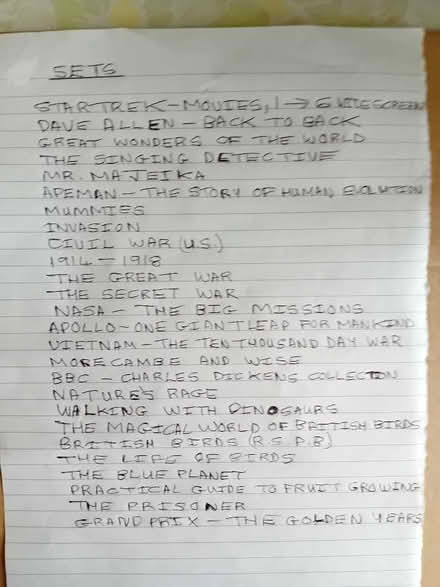 SETS
STARTREK - MOVIES, 1 → 6 WIDESCREEN
DAVE ALLEN - BACK TO BACK
GREAT WONDERS OF THE WORLD
THE SINGING DETECTIVE
MR. MAJEIKA
APEMAN - THE STORY OF HUMAN EVOLUTION
MUMMIES
INVASION
CIVIL WAR (U.S.)
1914 - 1918
THE GREAT WAR
THE SECRET WAR
NASA - THE BIG MISSIONS
APOLLO - ONE GIANT LEAP FOR MANKIND
VIETNAM - THE TEN THOUSAND DAY WAR
MORECAMBE AND WISE
BBC - CHARLES DICKENS COLLECTION
NATURE'S RAGE
WALKING WITH DINOSAURS
THE MAGICAL WORLD OF BRITISH BIRDS
BRITISH BIRDS (R.S.P.B)
THE LIFE OF BIRDS
THE BLUE PLANET
PRACTICAL GUIDE TO FRUIT GROWING
THE PRISONER
GRAND PRIX - THE GOLDEN YEARS